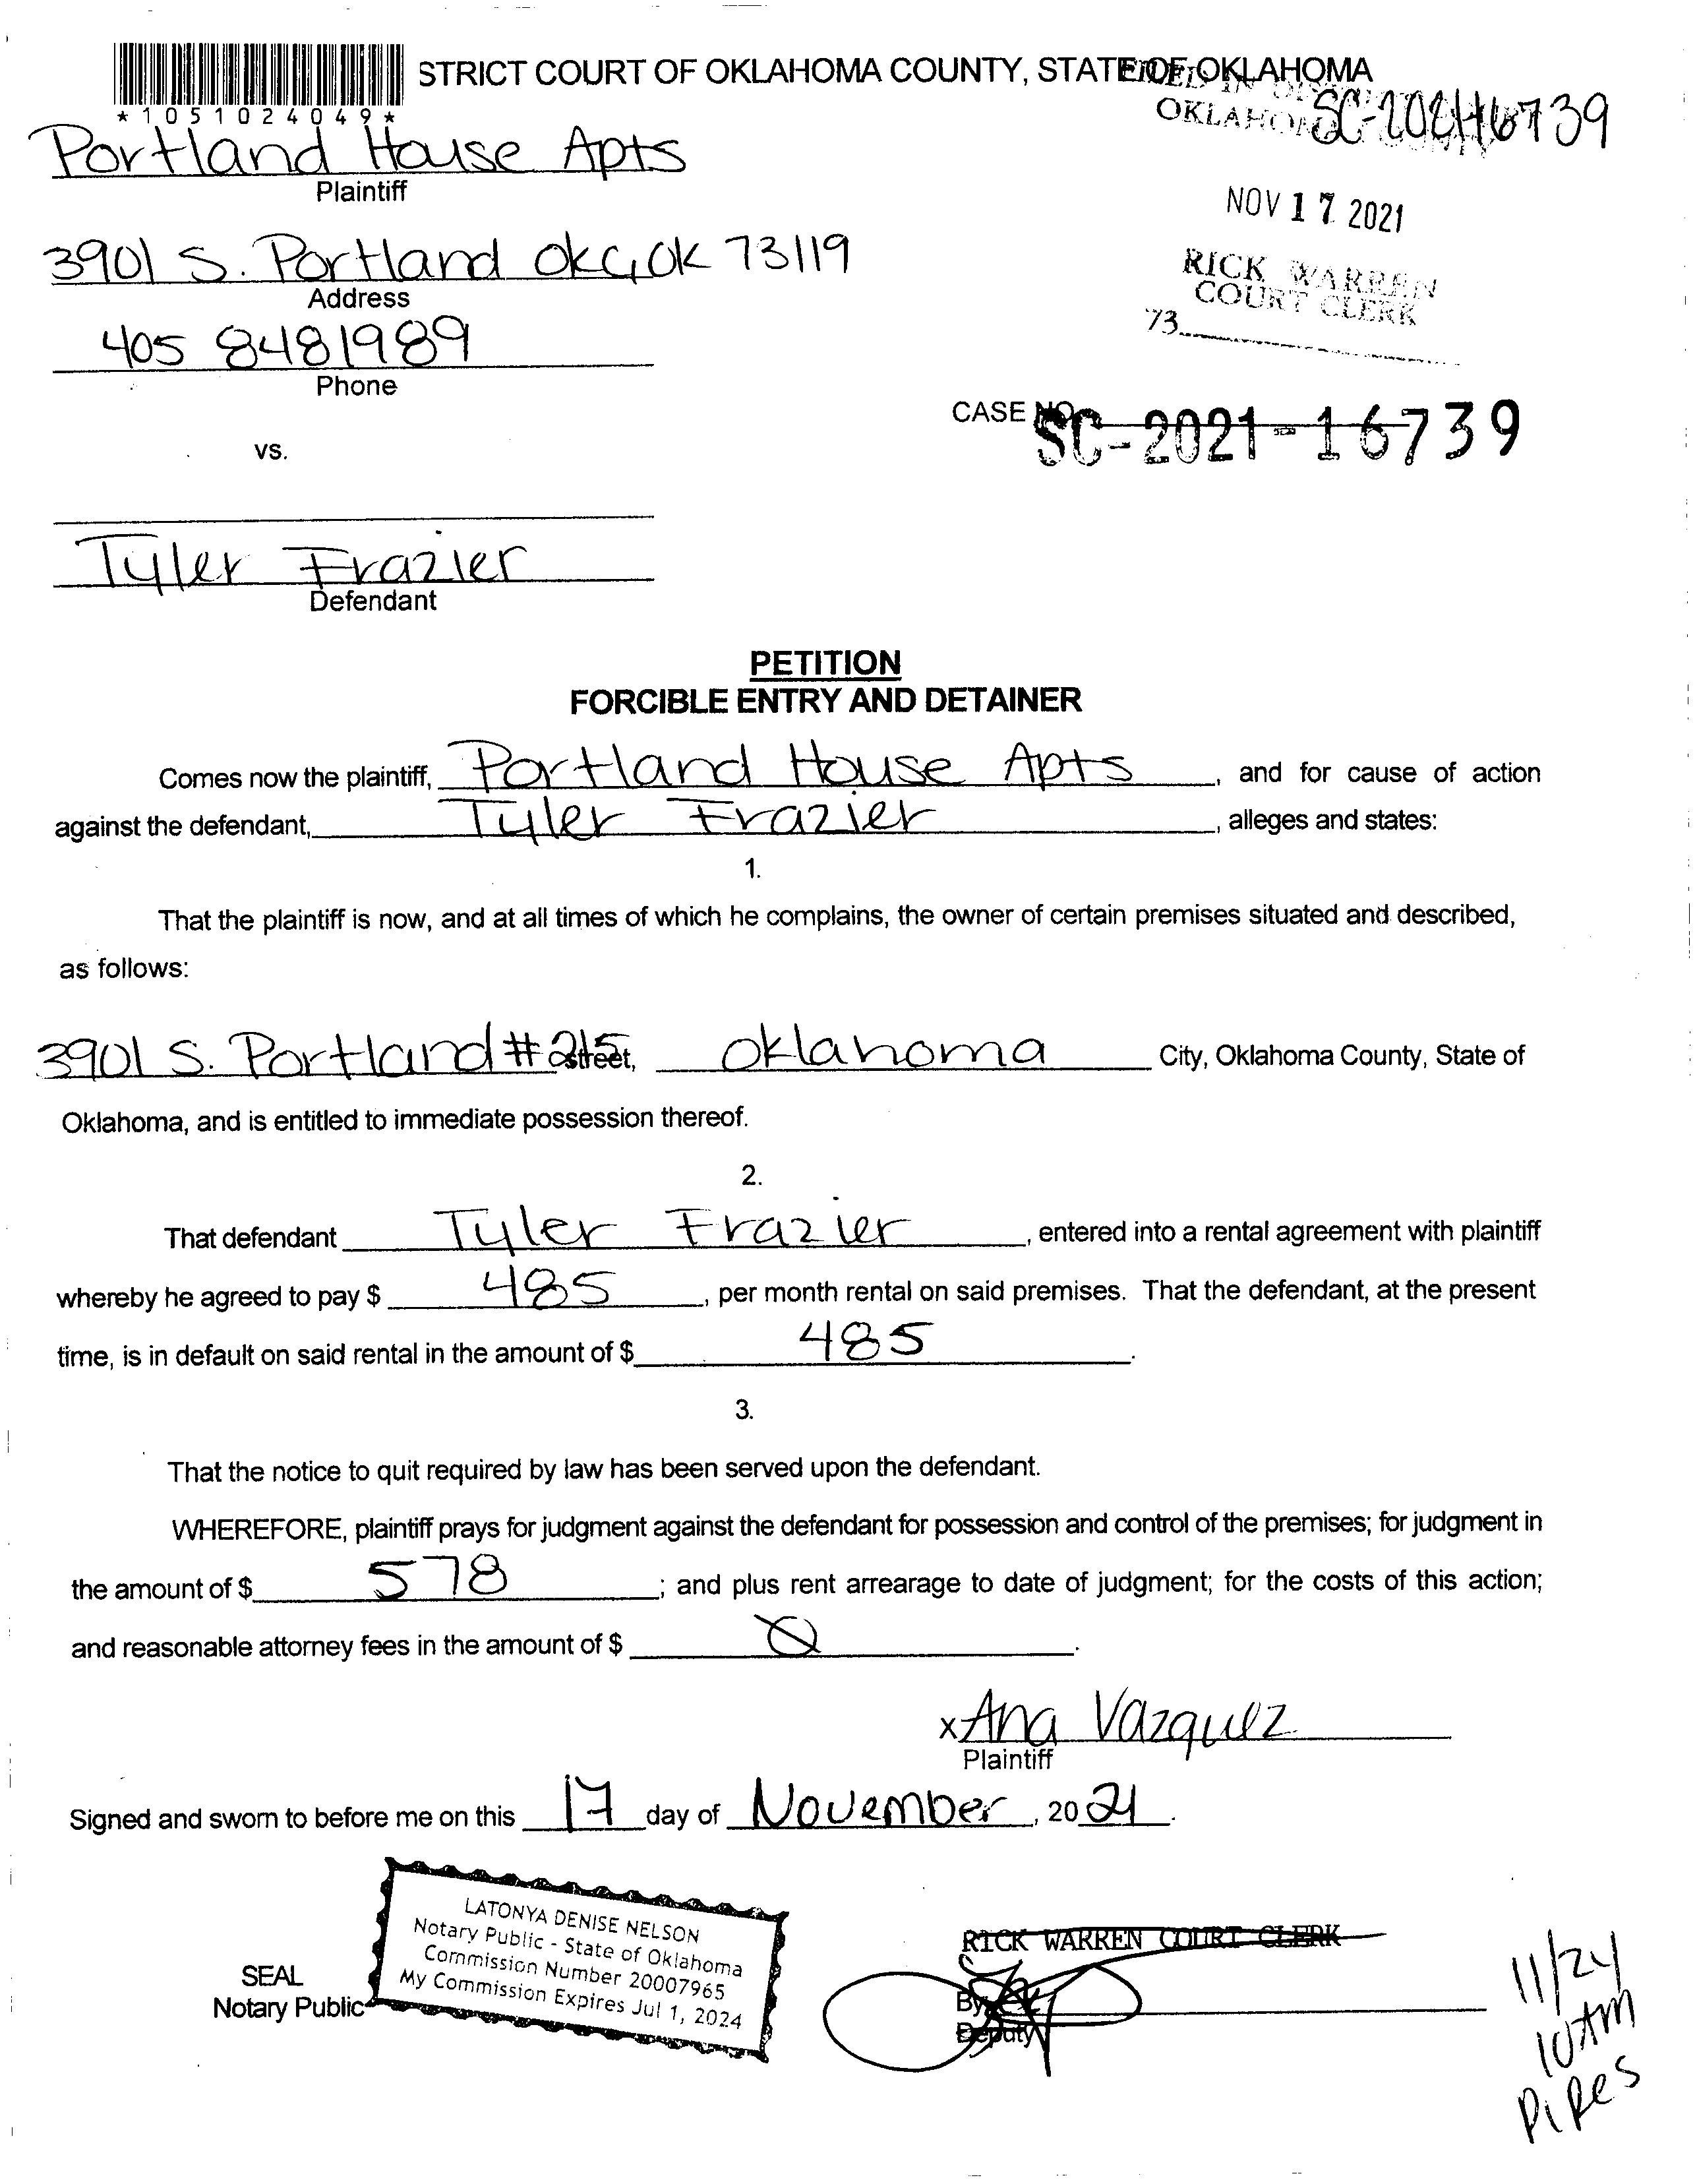 STRICT COURT OF OKLAHOMA COUNTY, STATE OF OKLAHOMA
*1051024049*
FILED IN
OKLAHOMA COUNTY
SC-2021-16739
Portland House Apts
Plaintiff
NOV 17 2021
3901 S. Portland OKC, OK 73119
Address
RICK WARREN
COURT CLERK
73
405 8481989
Phone
CASE NO.
SC-2021-16739
vs.
Tyler Frazier
Defendant
PETITION
FORCIBLE ENTRY AND DETAINER
Comes now the plaintiff, Portland House Apts, and for cause of action
against the defendant, Tyler Frazier, alleges and states:
1.
That the plaintiff is now, and at all times of which he complains, the owner of certain premises situated and described,
as follows:
3901 S. Portland #215 street, Oklahoma City, Oklahoma County, State of
Oklahoma, and is entitled to immediate possession thereof.
2.
That defendant Tyler Frazier, entered into a rental agreement with plaintiff
whereby he agreed to pay $ 485, per month rental on said premises. That the defendant, at the present
time, is in default on said rental in the amount of $ 485.
3.
That the notice to quit required by law has been served upon the defendant.
WHEREFORE, plaintiff prays for judgment against the defendant for possession and control of the premises; for judgment in
the amount of $ 578; and plus rent arrearage to date of judgment; for the costs of this action;
and reasonable attorney fees in the amount of $ 0.
x Ana Vazquez
Plaintiff
Signed and sworn to before me on this 17 day of November, 2021.
LATONYA DENISE NELSON
Notary Public - State of Oklahoma
Commission Number 20007965
My Commission Expires Jul 1, 2024
SEAL
Notary Public
RICK WARREN COURT CLERK
By
Deputy
11/24
10 AM
Pipes